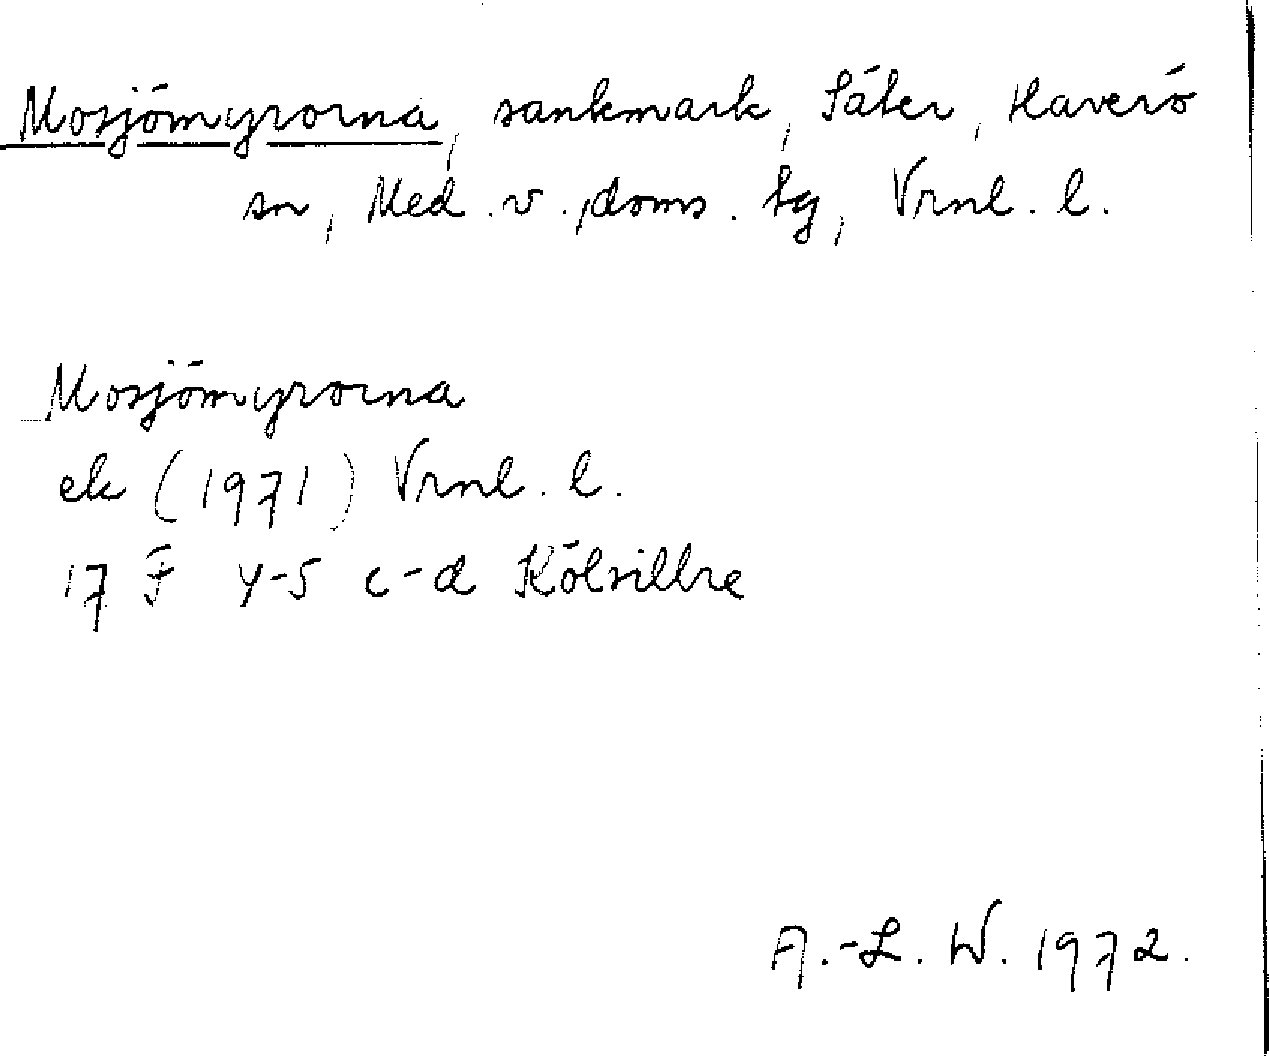 Mosjömyrorna, sankmark, Säter, Haverö
sn, Med. v., doms. sg, Vrnl. l.
Mosjömyrorna
ek (1971) Vrnl. l.
17 F 4-5 c-d Kölsillre
A.-L. W. 1972.